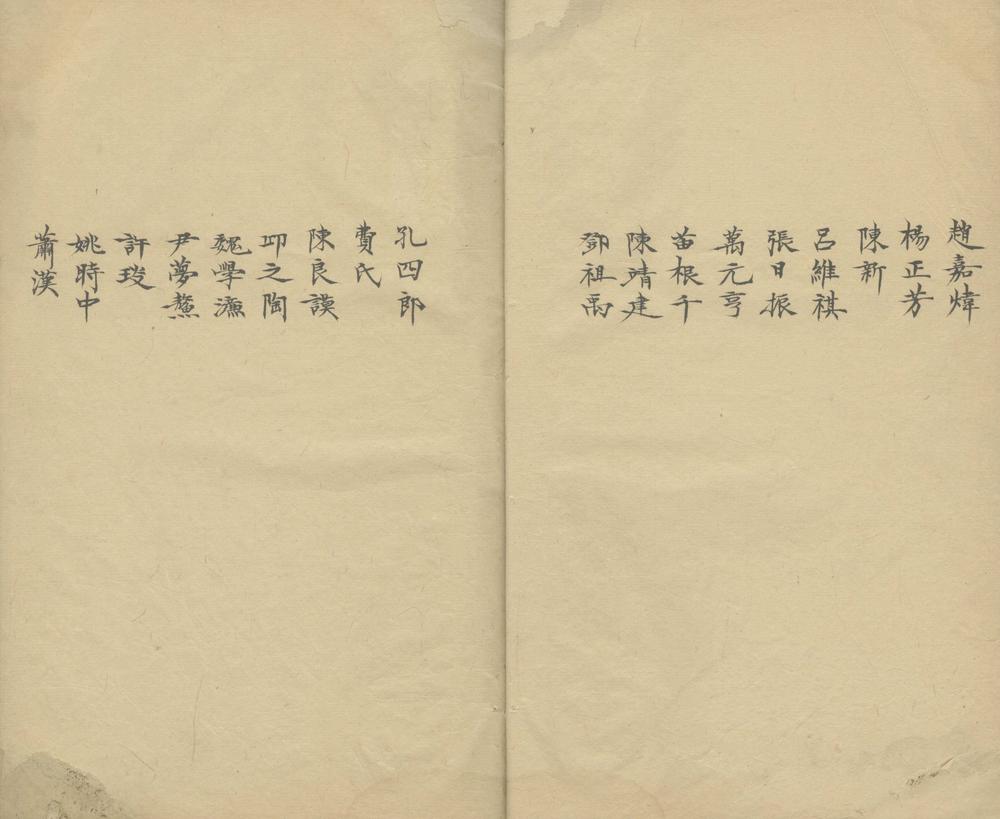 趙嘉煒
楊正芳
陳新
呂維祺
張日振
萬元亨
苗根千
陳靖建
鄧祖禹
孔四郎
費氏
陳良謨
邱之陶
魏學濂
尹夢鰲
許琰
姚時中
蕭漢